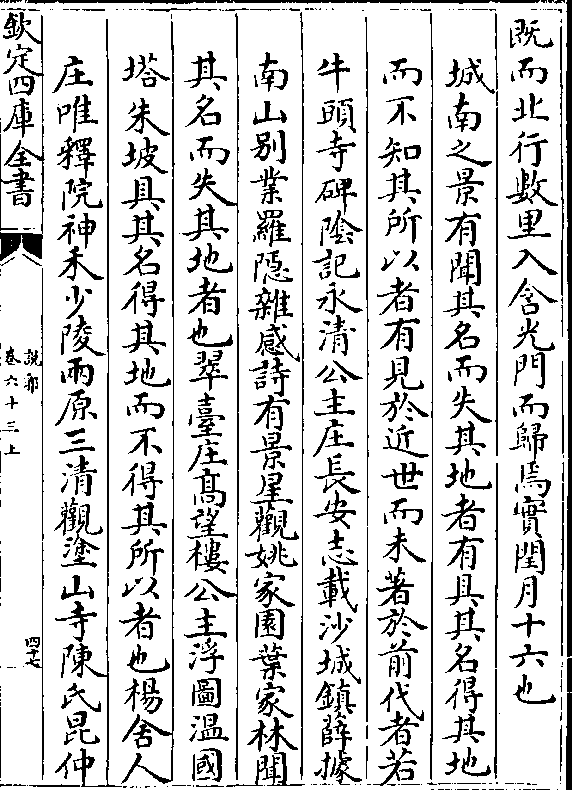 既而北行數里入含光門而歸焉實閏月十六也
城南之景有聞其名而失其地者有具其名得其地
而不知其所以者有見於近世而未著於前代者若
牛頭寺碑隂記永清公主庄長安志載沙城鎮薛據
南山别業羅隠雜感詩有景星觀姚家園葉家林聞
其名而失其地者也翠臺庄髙望樓公主浮圖温國
塔朱坡具其名得其地而不得其所以者也楊舍人
庄唯釋院神禾少陵兩原三清觀塗山寺陳氏昆仲
欽定四庫全書
説郛
卷六十三上
四十七